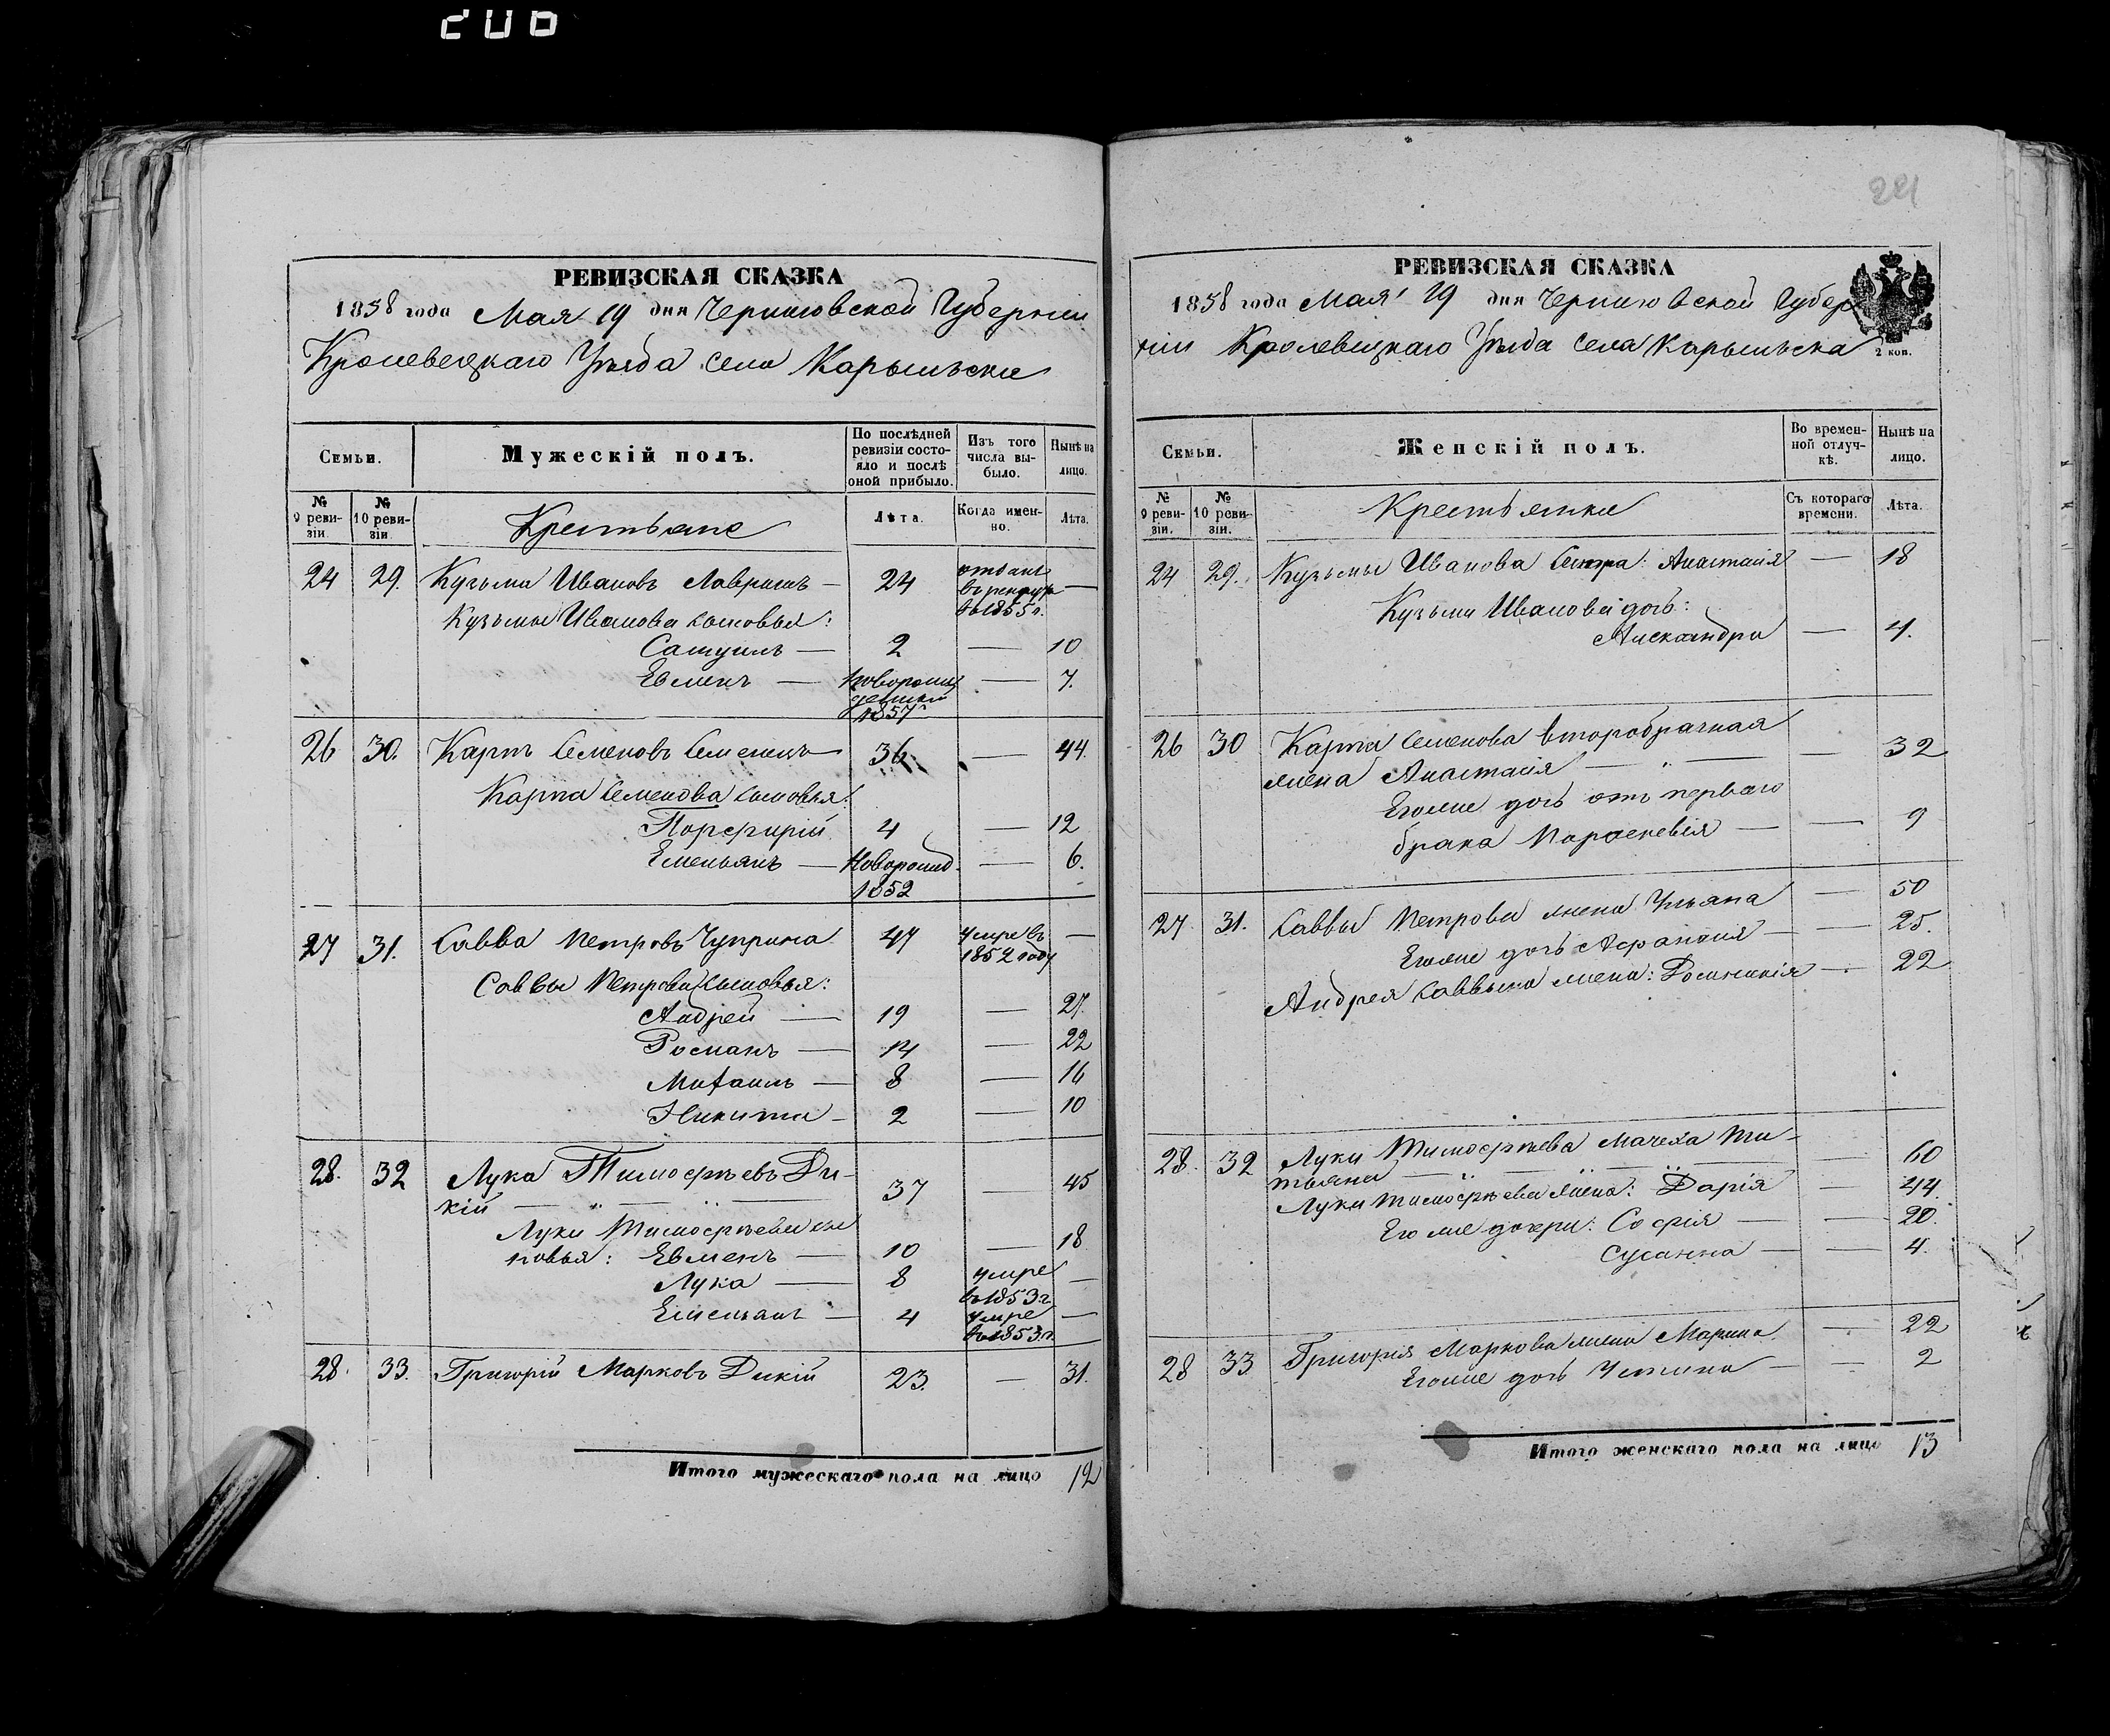 206
РЕВИЗСКАЯ СКАЗКА
1858 года Мая 19 дня Черниговской Губерніи
Кролевецкаго Уѣзда села Карыльска
Семьи.
Мужескій полъ.
По послѣдней ревизіи состояло и послѣ оной прибыло.
Изъ того числа выбыло.
Нынѣ на лицо.
№ 9 ревизіи.
№ 10 ревизіи.
Крестьяне
Лѣта.
Когда именно.
Лѣта.
24 29. Кузьма Ивановъ — 24 отданъ в рекруты в 1855 г. —
Кузьмы Иванова сыновья:
Самуилъ — 2 — 10
Евменъ — Новорожденный 1857 — 7.
26 30. Карпъ Семеновъ 36 — 44.
Карпа Семенова сыновья:
Порфирій 4 — 12
Емельянъ — Новорожд. 1852 — 6.
27 31. Савва Петровъ Чуприна 47 умре въ 1852 году —
Саввы Петрова сыновья:
Андрей — 19 — 27.
Романъ — 14 — 22
Михаилъ — 8 — 16
Никита — 2 — 10
28. 32 Лука Тимофѣевъ Ди-
кій — " — " — 37 — 45
Луки Тимофѣева сы
новья: Евменъ — 10 — 18
Лука — 8 умре в 1853 г. —
Емельянъ — 4 умре в 1853 г. —
28. 33. Григорій Марковъ Дикій 23. — 31.
Итого мужескаго пола на лицо 12
221
РЕВИЗСКАЯ СКАЗКА
1858 года Мая 19 дня Черниговской Губер
ніи Кролевецкаго Уѣзда Села Карыльска
2 коп.
Семьи.
Женскій полъ.
Во временной отлучкѣ.
Нынѣ на лицо.
№ 9 ревизіи.
№ 10 ревизіи.
Крестьянки
Съ котораго времени.
Лѣта.
24 29. Кузьмы Иванова Сестра: Анастасія — 18
Кузьмы Иванова дочь:
Александра — 4.
26 30 Карпа Семенова второбрачная
жена Анастасія — " — — 32
Егоже дочь отъ перваго
брака Параскевія — — 9
27 31. Саввы Петрова жена Ульяна — 50
Егоже дочь — — 25.
Андрея Саввина жена: Домникія — 22
28. 32 Луки Тимофѣева Мачеха Та-
тьяна — " — " — 60
Луки Тимофѣева жена: Дарія — 44.
Его же дочери: Софія — — 20.
Сусанна — — 4.
28 33 Григорія Маркова жена Марина — 22
Егоже дочь Устина — — 2
Итого женскаго пола на лицо 13